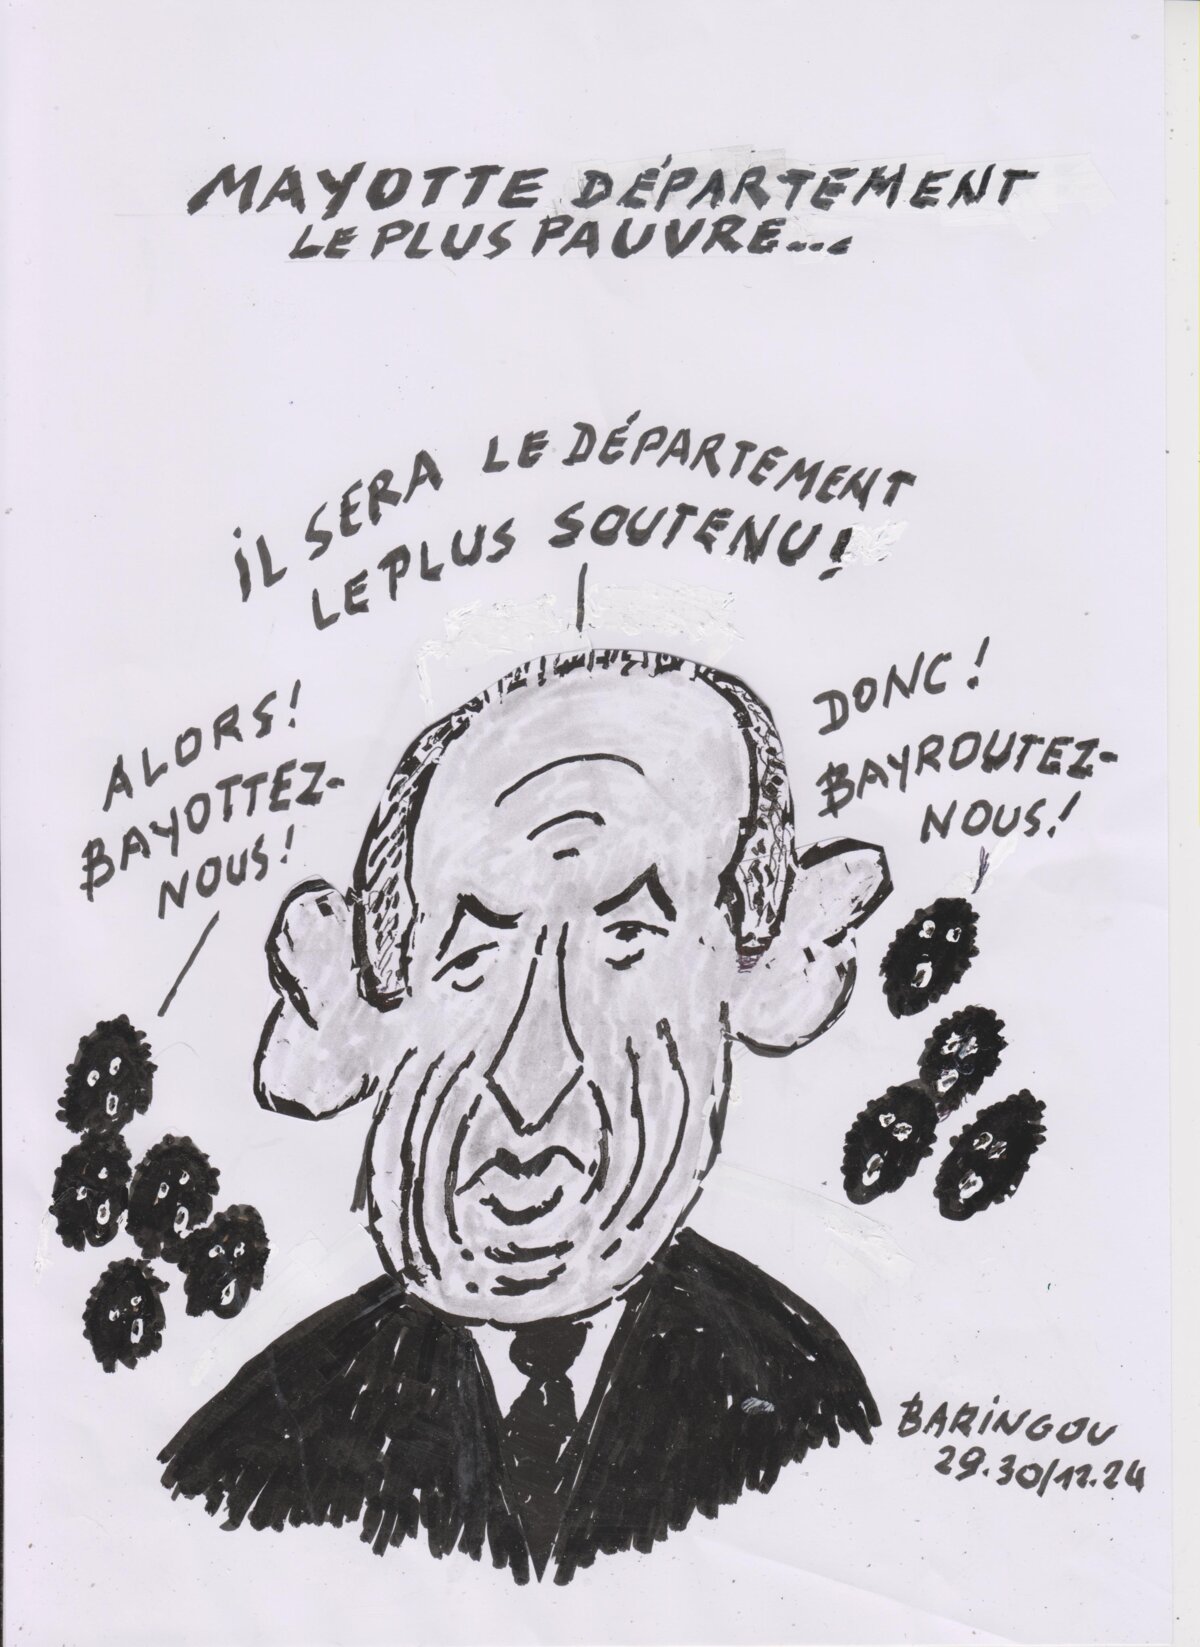 MAYOTTE DÉPARTEMENT
LE PLUS PAUVRE...
iL SERA LE DÉPARTEMENT
LE PLUS SOUTENU!
ALORS!
BAYOTTEZ-
NOUS!
DONC!
BAYROUTEZ-
NOUS!
BARiNGOU
29.30/12.24